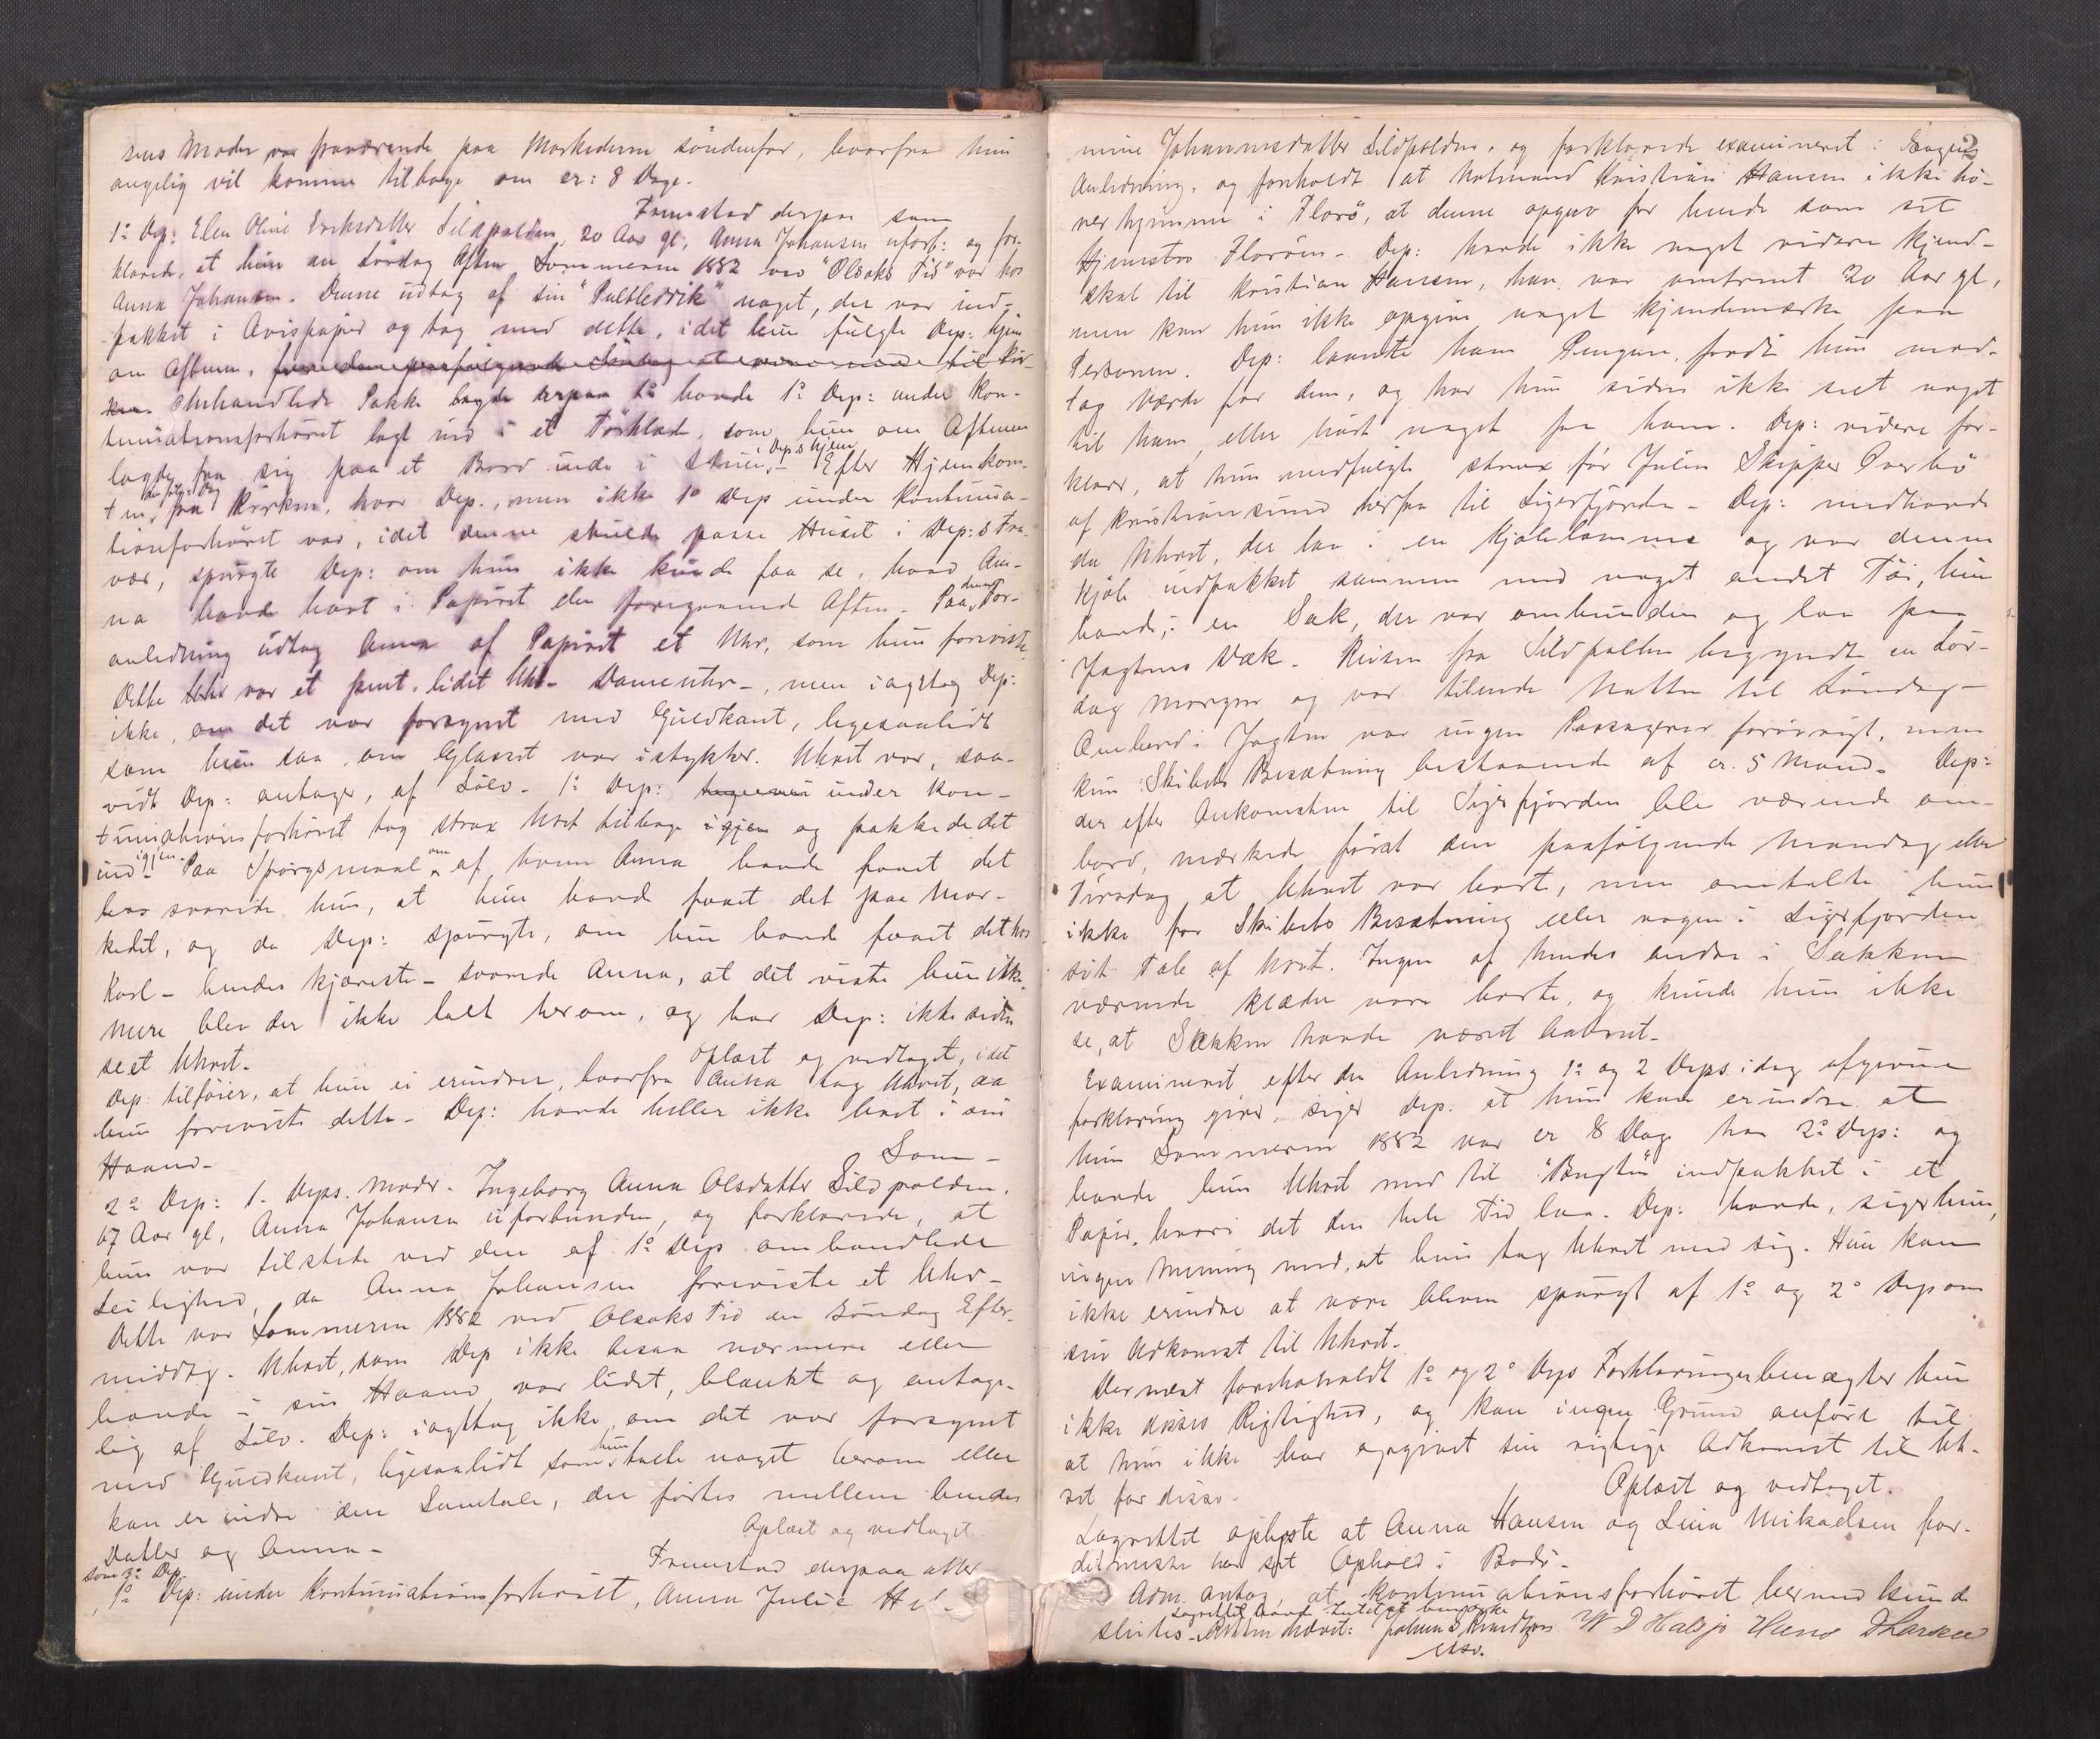 sens Moder var fraværende paa Markederne söndenfor, hvorfra hun
angelig vil komme tilbage om cr: 8 Dage.
Fremstod derpaa som
1ᵒ Dep: Elen Oline Eriksdatter Sildpolden, 20 Aar gl, Anna Johansen uforb: og for-
klarede, at hun en Lördag Aften Sommeren 1882 ved "Olsoks Tid" var hos
Anna Johansen. Denne udtog af sin "Pultledrik" noget, der var ind-
pakket i Avispapir og tog med dette, idet hun fulgte Dep: hjem
om Aftenen, for den paafølgende Söndag at være med til Kir-
ken. Omhandlede Pakke havde 1ᵒ Dep: under Kon-
tinuationsforhöret lagt ind i et Törklæde, som hun om Aftenen
lagde fra sig paa et Bord inde i Stuen, Dep's hjem - Efter Hjemkom-
ten, den fölg: Dag fra Kirken, hvor Dep., men ikke 1ᵒ Dep under Kontinua-
tionsforhöret var, idet denne skulde passe Huset i Dep:s Fra-
vær, spurgte Dep: om hun ikke kunde faa se, hvad An-
na havde havt i Papiret den foregaaende Aften. Paa dennes For-
anledning udtog Anna af Papiret et Uhr, som hun foreviste.
Dette Uhr var et pent, lidet Uhr - Dameuhr -, men iagttog Dep:
ikke, om det var forsynet med Guldkant, ligesaalidt
som hun saa om Glasset var istykker. Uhret var, saa-
vidt Dep: antager, af Sölv. 1ᵒ Dep: under Kon-
tinuationsforhöret tog strax Uhret tilbage igjen og pakkede det
ind igjen. Paa Spörgsmaal om af hvem Anna havde faaet det
hos svarede hun, at hun havde faaet det paa Mar-
kedet, og da Dep: spurgte, om hun havde faaet det hos
Karl - hendes Kjæreste - svarede Anna, at det vidste hun ikke.
Mere blev der ikke talt herom, og har Dep: ikke siden
seet Uhret.
Oplæst og vedtaget, idet
Dep: tilföier, at hun ei erindrer, hvorfra Anna tog Uhret, da
hun foreviste dette. Dep: havde heller ikke havt i sin
Haand.
Som
2ᵒ Dep: 1. Deps. Moder. Ingeborg Anna Olsdatter Sildpolden,
67 Aar gl, Anna Johansen uforbunden, og forklarede, at
hun var tilstede ved den af 1ᵒ Dep omhandlede
Leilighed, da Anna Johansen foreviste et Uhr -
Dette var Sommeren 1882 ved Olsoks Tid en Söndag Efter-
middag. Uhret, som Dep ikke besaa nærmere eller
havde i sin Haand var lidet, blankt og antage-
lig af Sölv. Dep: iagttog ikke, om det var forsynet
med Guldkant, ligesaalidt som hun talte noget herom eller
kan erindre den Samtale, der förtes mellem hendes
Datter og Anna -
Oplæst og vedtaget.
Fremstod derpaa atter
som 3ᵒ Dep.
1ᵒ Dep: under Kontinuationsforhöret, Anna Julie
2
mine Johannesdatter Sildpolden, og forklarede examineret i
Anledning, og foreholdt at Kristian Hansen ikke hö-
rer hjemme i Florö, at denne opgav for hende som sit
Hjemsted Floröen - Dep: havde ikke noget videre Kjend-
skab til Kristian Hansen, han var omtrent 20 Aar gl,
men kan hun ikke opgive noget Kjendemærke paa
Personen. Dep: laante ham Pengene, fordi hun mod-
tog Værde for dem, og har hun siden ikke seet noget
til ham eller hört noget fra ham. Dep: videre for-
klarer, at hun medfulgte strax för Julen Skipper Overbö
af Kristiansund herfra til Sigerfjorden - Dep: medhavde
da Uhret, der laa i en Kjolelomme og var denne
Kjole indpakket sammen med noget andet Töi, hun
havde, i en Sæk, der var ombunden og laa paa
Jagtens Dæk. Reisen fra Sildpollen begyndte en Lör-
dag Morgen og var tilende Natten til Söndag -
Ombord i Jagten var ingen Passagerer forövrigt, men
kun Skibets Besætning bestaaende af cr. 5 Mand. Dep:
der efter Ankomsten til Sigerfjorden blev værende om-
bord, mærkede först den paafölgende Mandag eller
Tirsdag at Uhret var borte, men omtalte hun
ikke for Skibets Besætning eller nogen i Sigerfjorden
sit Tab af Uhret. Ingen af hendes andre i Sækken
værende Klæder vare borte, og kunde hun ikke
se, at Sækken havde været aabnet.
Examineret efter den Anledning 1ᵒ og 2 Deps idag afgivne
Forklaring giver, siger Dep. at hun kan erindre at
hun Sommeren 1882 var cr 8 Dage hos 2ᵒ Dep: og
havde hun Uhret med til "Bugten" indpakket i et
Papir, hvori det den hele Tid laa. Dep: havde, siger hun,
ingen Mening med, at hun tog Uhret med sig. Hun kan
ikke erindre at være bleven spurgt af 1ᵒ og 2ᵒ Dep om
sin Adkomst til Uhret.
Dernæst foreholdt 1ᵒ og 2ᵒ Deps Forklaringer benægter hun
ikke disses Rigtighed, og kan ingen Grund anföre til
at hun ikke har opgivet sin rigtige Adkomst til Uh-
ret for disse.
Oplæst og vedtaget.
Lagrettet oplyste at Anna Hansen og Lina Mikaelsen for-
har sit Ophold i Bodö.
Adm. antog, at Kontinuationsforhöret hermed kunde
Lagrettet havde Intet at bemærke
sluttes. Retten hævet: